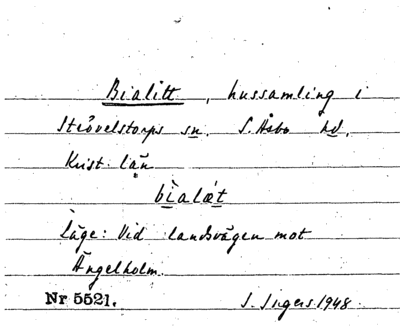 Bialitt, hussamling i
Strövelstorps sn. S. Åsbo hd.
Krist. län
bìalǽt
Läge: Vid landsvägen mot
Ängelholm.
Nr 5521. I. Ingers 1948